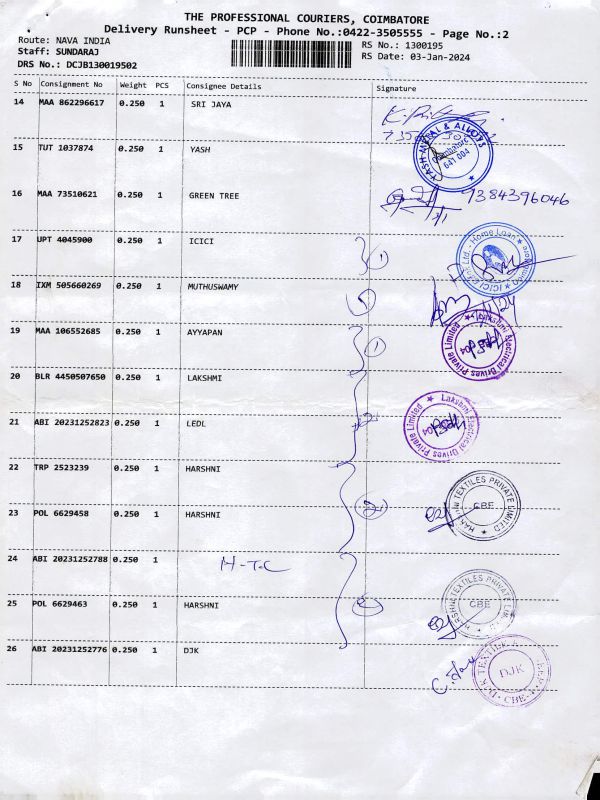 THE PROFESSIONAL COURIERS, COIMBATORE
Delivery Runsheet - PCP - Phone No.:0422-3505555 - Page No.:2
Route: NAVA INDIA
Staff: SUNDARAJ
DRS No.: DCJB130019502
RS No.: 1300195
RS Date: 03-Jan-2024
S No Consignment No Weight PCS Consignee Details Signature
14 MAA 862296617 0.250 1 SRI JAYA
15 TUT 1037874 0.250 1 YASH
YASH METAL & ALLOYS
Coimbatore
641 004
16 MAA 73510621 0.250 1 GREEN TREE 9384396046
17 UPT 4045900 0.250 1 ICICI 1
Ltd.- Home Loan
ICICI
18 IXM 505660269 0.250 1 MUTHUSWAMY
19 MAA 106552685 0.250 1 AYYAPAN 1
Lakshmi Electrical Drives Private Limited
20 BLR 4450507650 0.250 1 LAKSHMI
21 ABI 20231252823 0.250 1 LEDL 2
Lakshmi Electrical Drives Private Limited
22 TRP 2523239 0.250 1 HARSHNI
TEXTILES PRIVATE LIMITED
CBE
23 POL 6629458 0.250 1 HARSHNI 2
24 ABI 20231252788 0.250 1 H-T-C
25 POL 6629463 0.250 1 HARSHNI
HARSHNI TEXTILES PRIVATE
CBE
26 ABI 20231252776 0.250 1 DJK
DJK
CBE